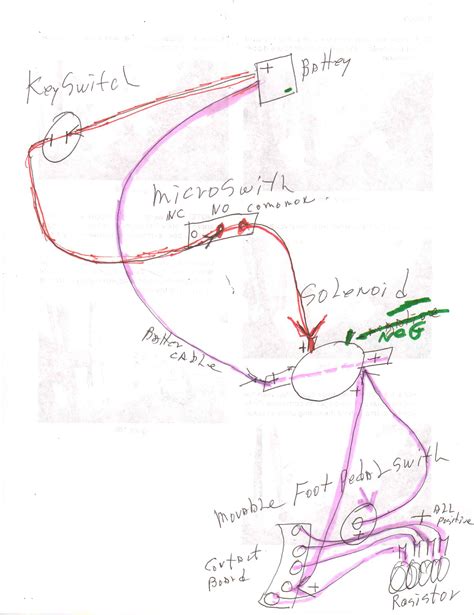 KeySwitch
Battery
+
-
MicroSwith
NC NO Comomon.
O
Solenoid
NeG
+
+
+
+
Batter
CABLE
Movable Foot Pedal Swith
+ ALL
positive
Contact
Board
Resistor